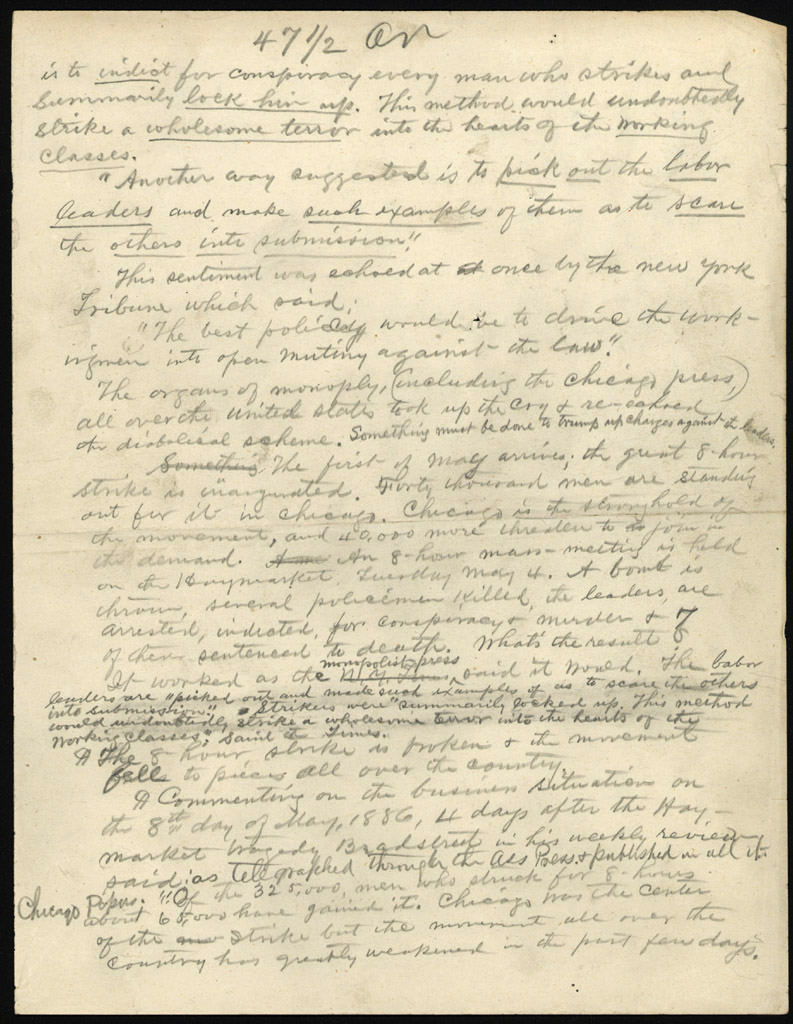 47 1/2 Or
is to indict for conspiracy every man who strikes and
summarily lock him up. This method would undoubtedly
strike a wholesome terror into the hearts of the working
classes.
"Another way suggested is to pick out the labor
leaders and make such examples of them as to scare
the others into submission."
This sentiment was echoed at at once by the new York
Tribune which said;
"The best policy would be to drive the work-
ingmen into open mutiny against the law."
The organs of monoply, (including the Chicago press,)
all over the United States took up the cry & re-echoed
the diabolical scheme. Something must be done to trump up charges against the leaders.
Something The first of May arrives; the great 8-hour
strike is inaugurated. Forty thousand men are standing
out for it in Chicago. Chicago is the stronghold of
the movement, and 40,000 more threaten to join in
the demand. An 8-hour mass-meeting is held
on the Haymarket, Tuesday May 4. A bomb is
thrown, several policemen killed, the leaders are
arrested, indicted, for conspiracy & murder & 7
of them sentenced to death. What's the result?
It worked as the N.Y. Times monopolist press said it would. The labor
leaders are "picked out and made such examples of as to scare the others
into submission." Strikers were "summarily locked up. This method
would undoubtedly strike a wholesome terror into the hearts of the
working classes." Said the Times.
The 8-hour strike is broken & the movement
fell to pieces all over the country.
Commenting on the business situation on
the 8th day of May, 1886, 4 days after the Hay-
market tragedy Bradstreet in his weekly review
said: as telegraphed through the Ass Press & published in all the
Chicago Papers. "Of the 325,000, men who struck for 8-hours
about 65,000 have gained it. Chicago was the center
of the strike but the movement all over the
country has greatly weakened in the past few days."